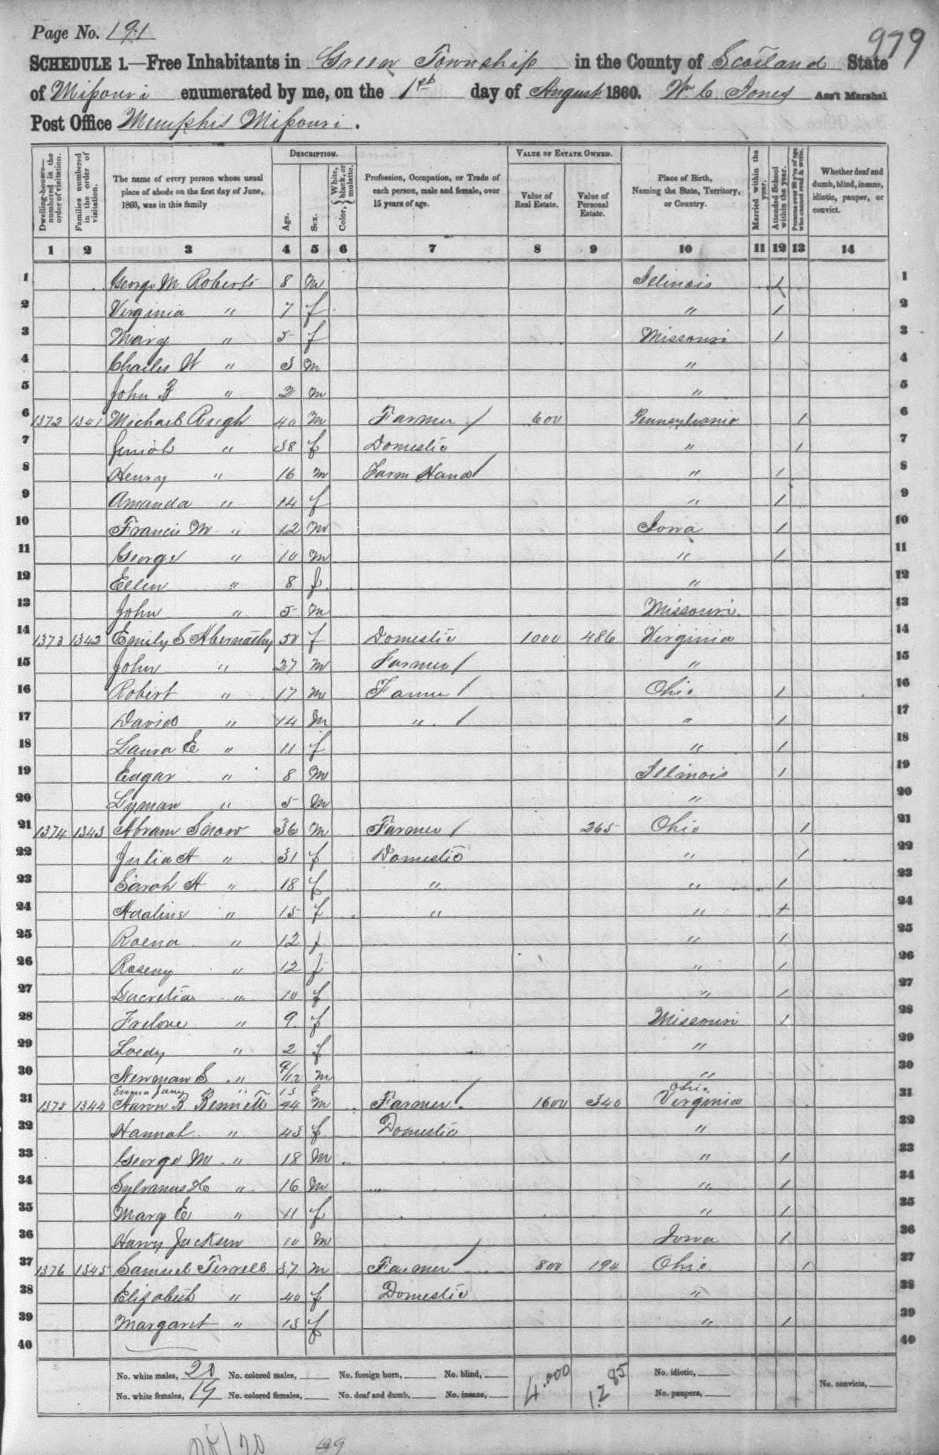 Page No. 191
979
SCHEDULE 1.—Free Inhabitants in Green Township in the County of Scotland State
of Missouri enumerated by me, on the 1st day of August 1860. W C Jones Ass't Marshal
Post Office Memphis Missouri.
Dwelling-houses—numbered in the order of visitation.
Families numbered in the order of visitation.
The name of every person whose usual place of abode on the first day of June, 1860, was in this family
DESCRIPTION.
Age.
Sex.
Color, White, black, or mulatto.
Profession, Occupation, or Trade of each person, male and female, over 15 years of age.
VALUE OF ESTATE OWNED.
Value of Real Estate.
Value of Personal Estate.
Place of Birth, Naming the State, Territory, or Country.
Married within the year.
Attended School within the year.
Persons over 20 y'rs of age who cannot read & write.
Whether deaf and dumb, blind, insane, idiotic, pauper, or convict.
1 2 3 4 5 6 7 8 9 10 11 12 13 14
1 George M Roberts 8 m Illinois 1 1
2 Virginia " 7 f " 1 2
3 Mary " 5 f Missouri 1 3
4 Charles W " 3 m " 4
5 John F " 2 m " 5
6 1372 1341 Michael Rough 40 m Farmer / 600 Pennsylvania 1 6
7 " 38 f Domestic " 1 7
8 Henry " 16 m Farm Hand / " 1 8
9 Amanda " 14 f " 1 9
10 Francis M " 12 m Iowa 1 10
11 George " 10 m " 1 11
12 Ellen " 8 f " 12
13 John " 5 m Missouri 13
14 1373 1342 Emily S Abernathy 50 f Domestic 1000 486 Virginia 14
15 John " 27 m Farmer / " 15
16 Robert " 17 m Farmer / Ohio 1 16
17 David " 14 m " / " 1 17
18 Laura E " 11 f " 1 18
19 Edgar " 8 m Illinois 1 19
20 Lyman " 5 m " 20
21 1374 1343 Abram Snow 36 m Farmer / 265 Ohio 1 21
22 Julia A " 31 f Domestic " 1 22
23 Sarah A " 18 f " " 1 23
24 Adaline " 15 f " " + 24
25 Roena " 12 f " 1 25
26 Roseny " 12 f " 1 26
27 Lucretia " 10 f " 1 27
28 Frelove " 9 f Missouri 1 28
29 Loedy " 2 f " 29
30 Newman S " 9/12 m " 30
Emma Jane " " 13 f Ohio
31 1375 1344 Aaron B Bennett 44 m Farmer / 1600 340 Virginia 31
32 Hannah " 43 f Domestic " 32
33 George M " 18 m " 1 33
34 Sylvanus H " 16 m " 1 34
35 Mary E " 11 f " 1 35
36 Harvy Jackson 10 m Iowa 1 36
37 1376 1345 Samuel Tirrell 37 m Farmer / 800 194 Ohio 1 37
38 Elizabeth " 40 f Domestic " 38
39 Margaret " 13 f " 1 39
40 40
No. white males, 20 No. colored males, No. foreign born, No. blind, 4.000 12 85 No. idiotic,
No. white females, 19 No. colored females, No. deaf and dumb, No. insane, No. paupers, No. convicts,